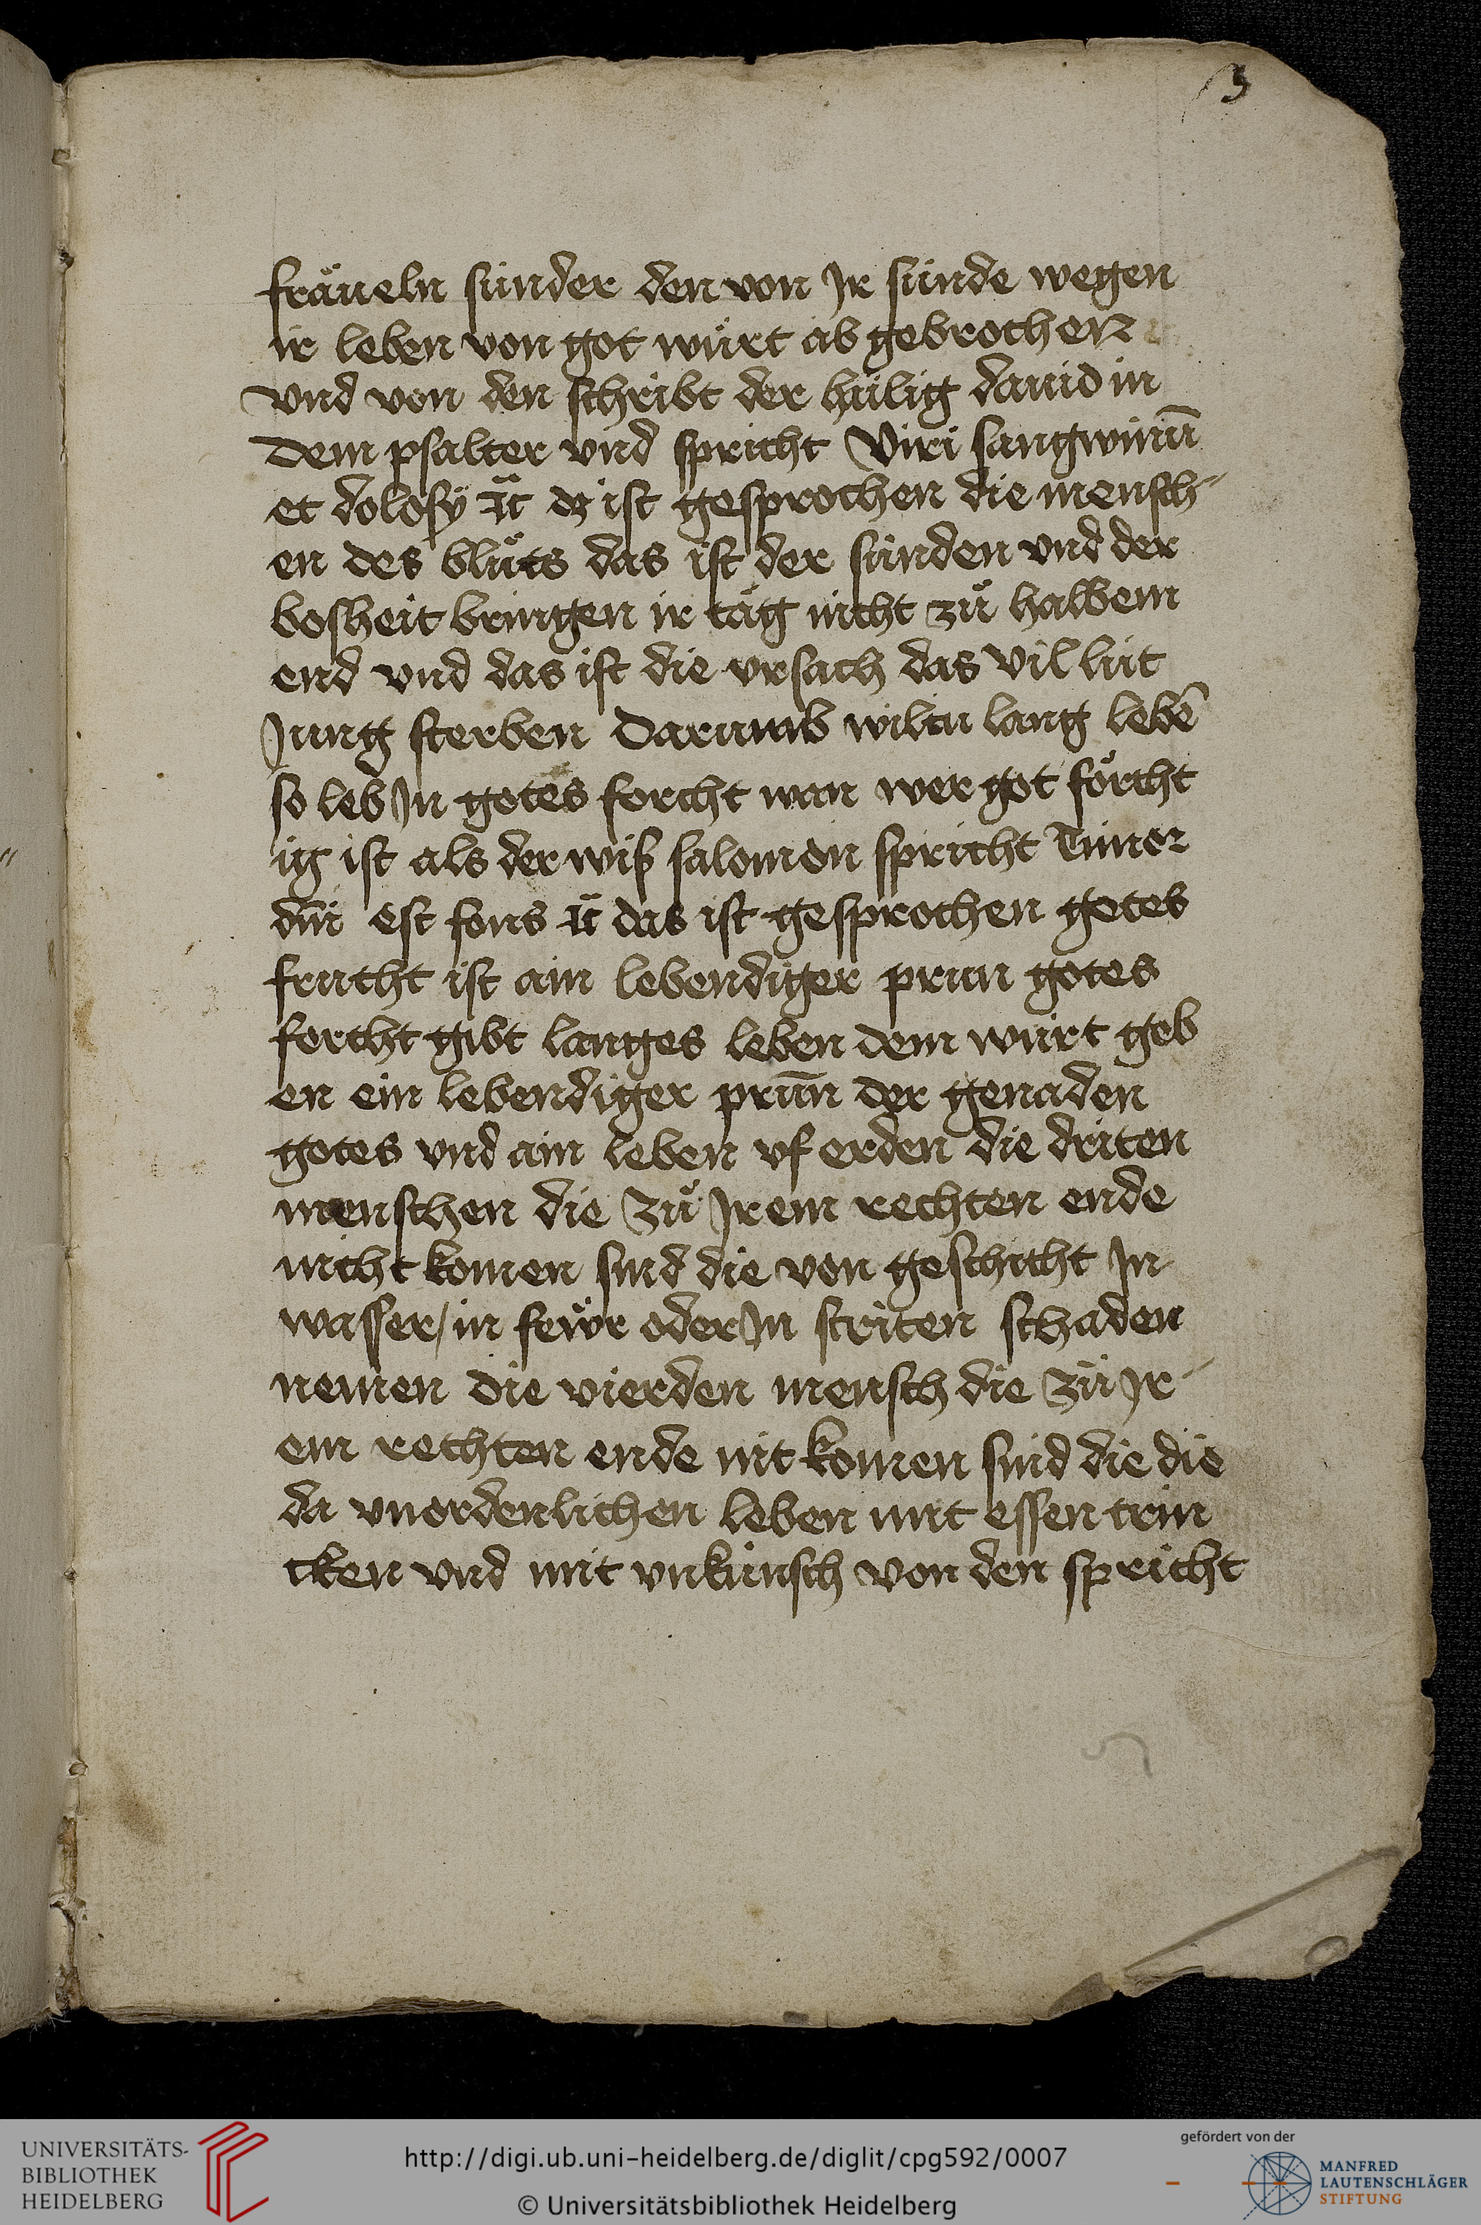 3
fräueln sünder den von Jr sünde wegen
ir leben von got würt ab gebrochen
vnd von den schribt der hailig dauid in
dem psalter vnd spricht Viri sangwinū
et dolosÿ ꝛc̈ dz ist gesprochen die mensch-
en des blůts das ist der sünden vnd der
bosheit bringen ir täg nicht zů halbem
end vnd das ist die vrsach das vil lüt
Jung sterben Darumb wiltu lang lebē
so leb Jn gotes forcht wan wer got förcht
ig ist als der wiß salomon spricht Timor
dn̄i est fons ꝛc̈ das ist gesprochen gotes
frucht ist ain lebendiger prun gotes
forcht gibt langes leben dem würt geb
en ein lebendiger prūn der genaden
gotes vnd ain leben vf erden die driten
menschen die zů Jrem rechten ende
nicht komen sind die von geschicht Jn
wasser/in fewr oder Jn striten schaden
nemen die vierden mensch die zů Jr-
em rechten ende nit komen sind die die
da vnordenlichen leben mit essen trin
cken vnd mit vnkünsch von den spricht
UNIVERSITÄTS-
BIBLIOTHEK
HEIDELBERG
http://digi.ub.uni-heidelberg.de/diglit/cpg592/0007
© Universitätsbibliothek Heidelberg
gefördert von der
MANFRED
LAUTENSCHLÄGER
STIFTUNG